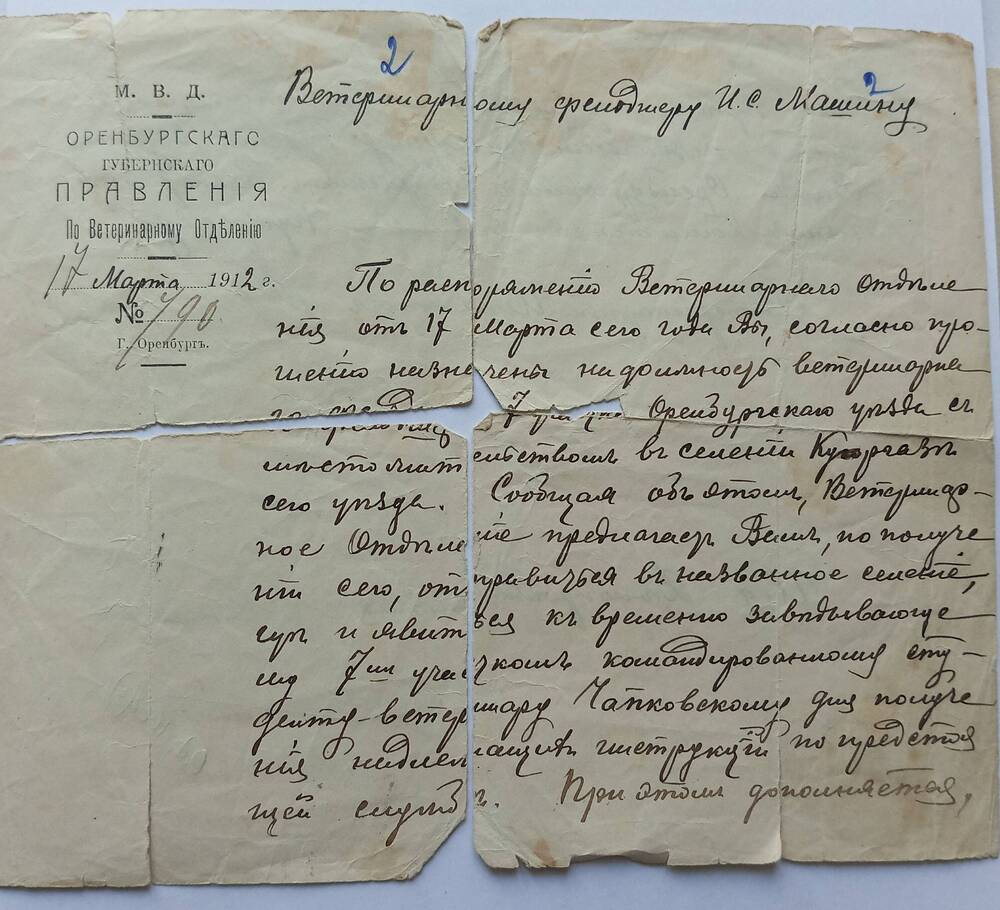 2
2
М. В. Д.
ОРЕНБУРГСКАГО
ГУБЕРНСКАГО
ПРАВЛЕНІЯ
По Ветеринарному Отдѣленію
17 Марта 1912 г.
№ 790
Г. Оренбургъ.
Ветеринарному фельдшеру И. С. Машину
По распоряженію Ветеринарнаго Отдѣле
нія отъ 17 Марта сего года Вы, согласно про-
шенію назначены на должность ветеринарна
го фельдш 7 Оренбургскаго уѣзда съ
мѣстожительствомъ въ селеніи
сего уѣзда. Сообщая объ этомъ, Ветеринар-
ное Отдѣленіе предлагаетъ Вамъ, по получе
ніи сего, отправиться въ названное селеніе,
и явиться къ временно завѣдывающе
му 7мъ участкомъ командированному сту-
денту-ветеринару Чапковскому для получе
нія надлежащихъ инструкцій по предстоя
щей службѣ. При этомъ дополняется,